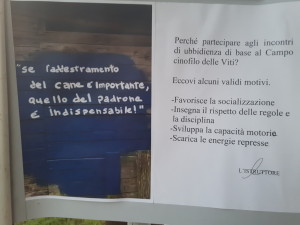 "se l'addestramento
del cane è importante,
quello del padrone
è indispensabile!"
Perché partecipare agli incontri
di ubbidienza di base al Campo
cinofilo delle Viti?
Eccovi alcuni validi motivi.
-Favorisce la socializzazione
-Insegna il rispetto delle regole e
la disciplina
-Sviluppa la capacità motorie
-Scarica le energie represse
L'ISTRUTTORE